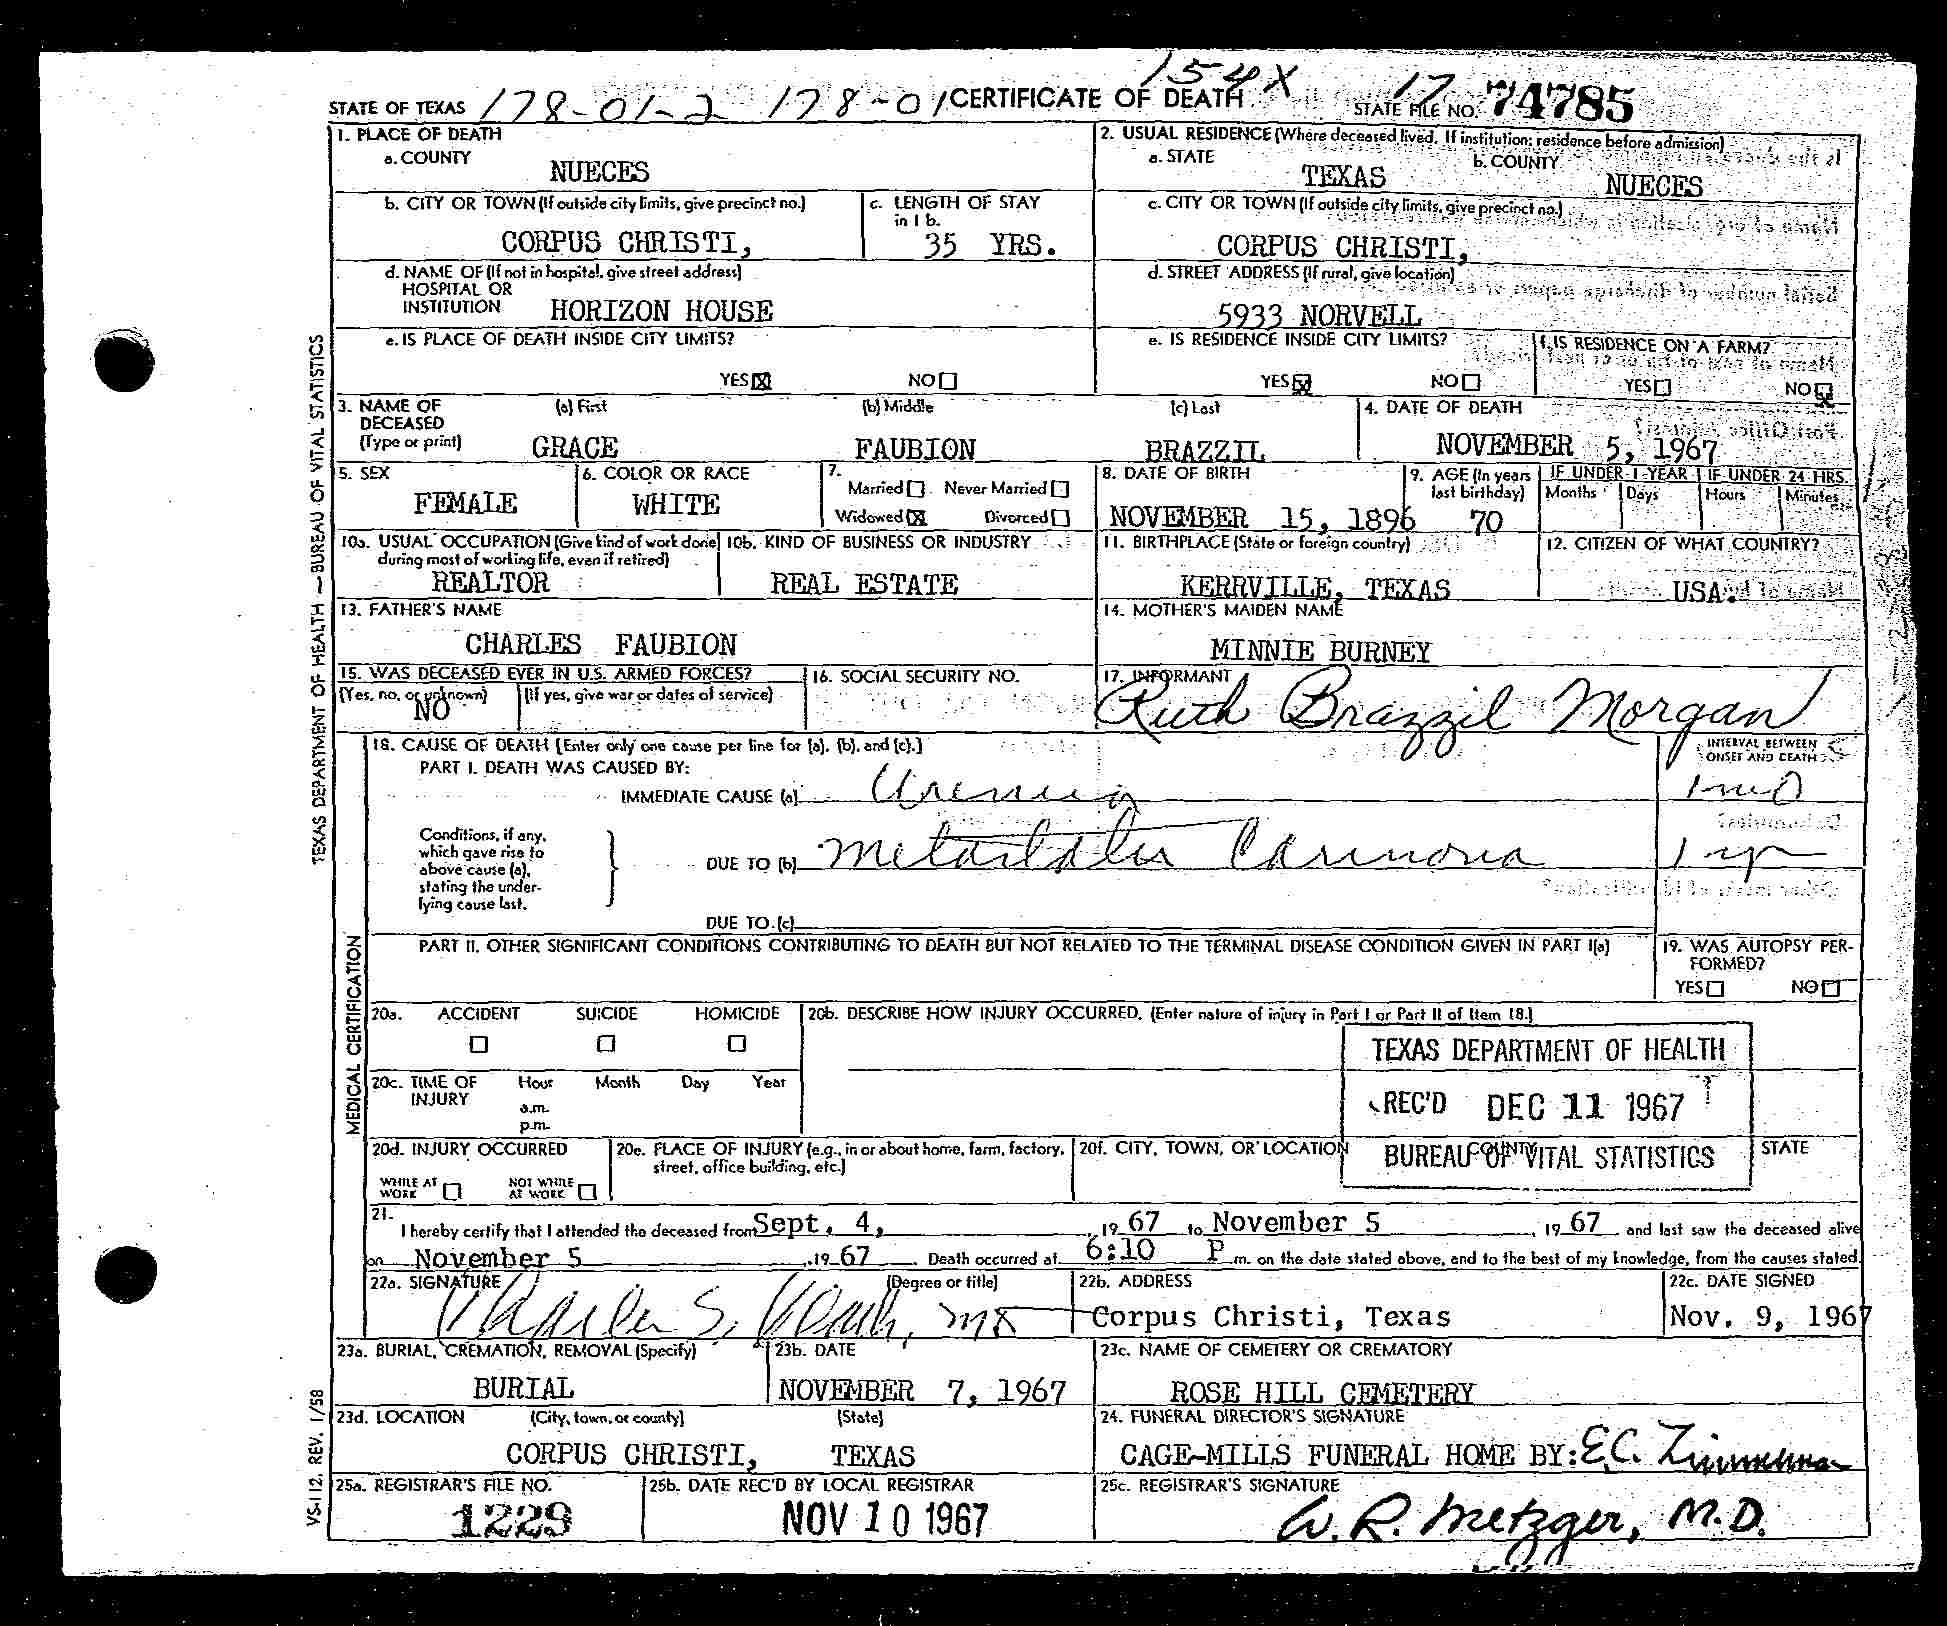 154X
STATE OF TEXAS 178-01-2 178-01 CERTIFICATE OF DEATH 17 STATE FILE NO. 74785
1. PLACE OF DEATH
a. COUNTY
NUECES
2. USUAL RESIDENCE (Where deceased lived. If institution: residence before admission)
a. STATE
TEXAS
b. COUNTY
NUECES
b. CITY OR TOWN (If outside city limits, give precinct no.)
CORPUS CHRISTI,
c. LENGTH OF STAY
in 1 b.
35 YRS.
c. CITY OR TOWN (If outside city limits, give precinct no.)
CORPUS CHRISTI,
d. NAME OF (If not in hospital, give street address)
HOSPITAL OR
INSTITUTION HORIZON HOUSE
d. STREET ADDRESS (If rural, give location)
5933 NORVELL
e. IS PLACE OF DEATH INSIDE CITY LIMITS?
YES☒ NO☐
e. IS RESIDENCE INSIDE CITY LIMITS?
YES☒ NO☐
f. IS RESIDENCE ON A FARM?
YES☐ NO☒
3. NAME OF
DECEASED
(Type or print)
(a) First (b) Middle (c) Last
GRACE FAUBION BRAZZIL
4. DATE OF DEATH
NOVEMBER 5, 1967
5. SEX
FEMALE
6. COLOR OR RACE
WHITE
7.
Married☐ Never Married☐
Widowed☒ Divorced☐
8. DATE OF BIRTH
NOVEMBER 15, 1896
9. AGE (In years
last birthday)
70
IF UNDER 1 YEAR IF UNDER 24 HRS.
Months Days Hours Minutes
10a. USUAL OCCUPATION (Give kind of work done
during most of working life, even if retired)
REALTOR
10b. KIND OF BUSINESS OR INDUSTRY
REAL ESTATE
11. BIRTHPLACE (State or foreign country)
KERRVILLE, TEXAS
12. CITIZEN OF WHAT COUNTRY?
USA.
13. FATHER'S NAME
CHARLES FAUBION
14. MOTHER'S MAIDEN NAME
MINNIE BURNEY
15. WAS DECEASED EVER IN U.S. ARMED FORCES?
(Yes, no, or unknown) (If yes, give war or dates of service)
NO
16. SOCIAL SECURITY NO.
17. INFORMANT
Ruth Brazzil Morgan
18. CAUSE OF DEATH [Enter only one cause per line for (a), (b), and (c).]
PART I. DEATH WAS CAUSED BY:
INTERVAL BETWEEN
ONSET AND DEATH
IMMEDIATE CAUSE (a) Uremia 1 mo
Conditions, if any,
which gave rise to
above cause (a),
stating the under-
lying cause last.
DUE TO (b) Metastatic Carcinoma 1 yr
DUE TO (c)
PART II. OTHER SIGNIFICANT CONDITIONS CONTRIBUTING TO DEATH BUT NOT RELATED TO THE TERMINAL DISEASE CONDITION GIVEN IN PART I(a)
19. WAS AUTOPSY PER-
FORMED?
YES☐ NO☐
20a. ACCIDENT SUICIDE HOMICIDE
☐ ☐ ☐
20b. DESCRIBE HOW INJURY OCCURRED. (Enter nature of injury in Part I or Part II of Item 18.)
20c. TIME OF
INJURY
Hour Month Day Year
a.m.
p.m.
TEXAS DEPARTMENT OF HEALTH
REC'D DEC 11 1967
BUREAU OF VITAL STATISTICS
20d. INJURY OCCURRED
WHILE AT
WORK ☐
NOT WHILE
AT WORK ☐
20e. PLACE OF INJURY (e.g., in or about home, farm, factory,
street, office building, etc.)
20f. CITY, TOWN, OR LOCATION COUNTY STATE
21.
I hereby certify that I attended the deceased from Sept. 4, 19 67 to November 5, 19 67 and last saw the deceased alive
on November 5, 19 67. Death occurred at 6:10 P.m. on the date stated above, and to the best of my knowledge, from the causes stated.
22a. SIGNATURE (Degree or title)
Charles S. MD
22b. ADDRESS
Corpus Christi, Texas
22c. DATE SIGNED
Nov. 9, 1967
23a. BURIAL, CREMATION, REMOVAL (Specify)
BURIAL
23b. DATE
NOVEMBER 7, 1967
23c. NAME OF CEMETERY OR CREMATORY
ROSE HILL CEMETERY
23d. LOCATION (City, town, or county) (State)
CORPUS CHRISTI, TEXAS
24. FUNERAL DIRECTOR'S SIGNATURE
CAGE-MILLS FUNERAL HOME BY: E.C. Zimmerman
25a. REGISTRAR'S FILE NO.
1229
25b. DATE REC'D BY LOCAL REGISTRAR
NOV 10 1967
25c. REGISTRAR'S SIGNATURE
W. R. Metzger, M.D.
TEXAS DEPARTMENT OF HEALTH — BUREAU OF VITAL STATISTICS
MEDICAL CERTIFICATION
VS-112. REV. 1/58